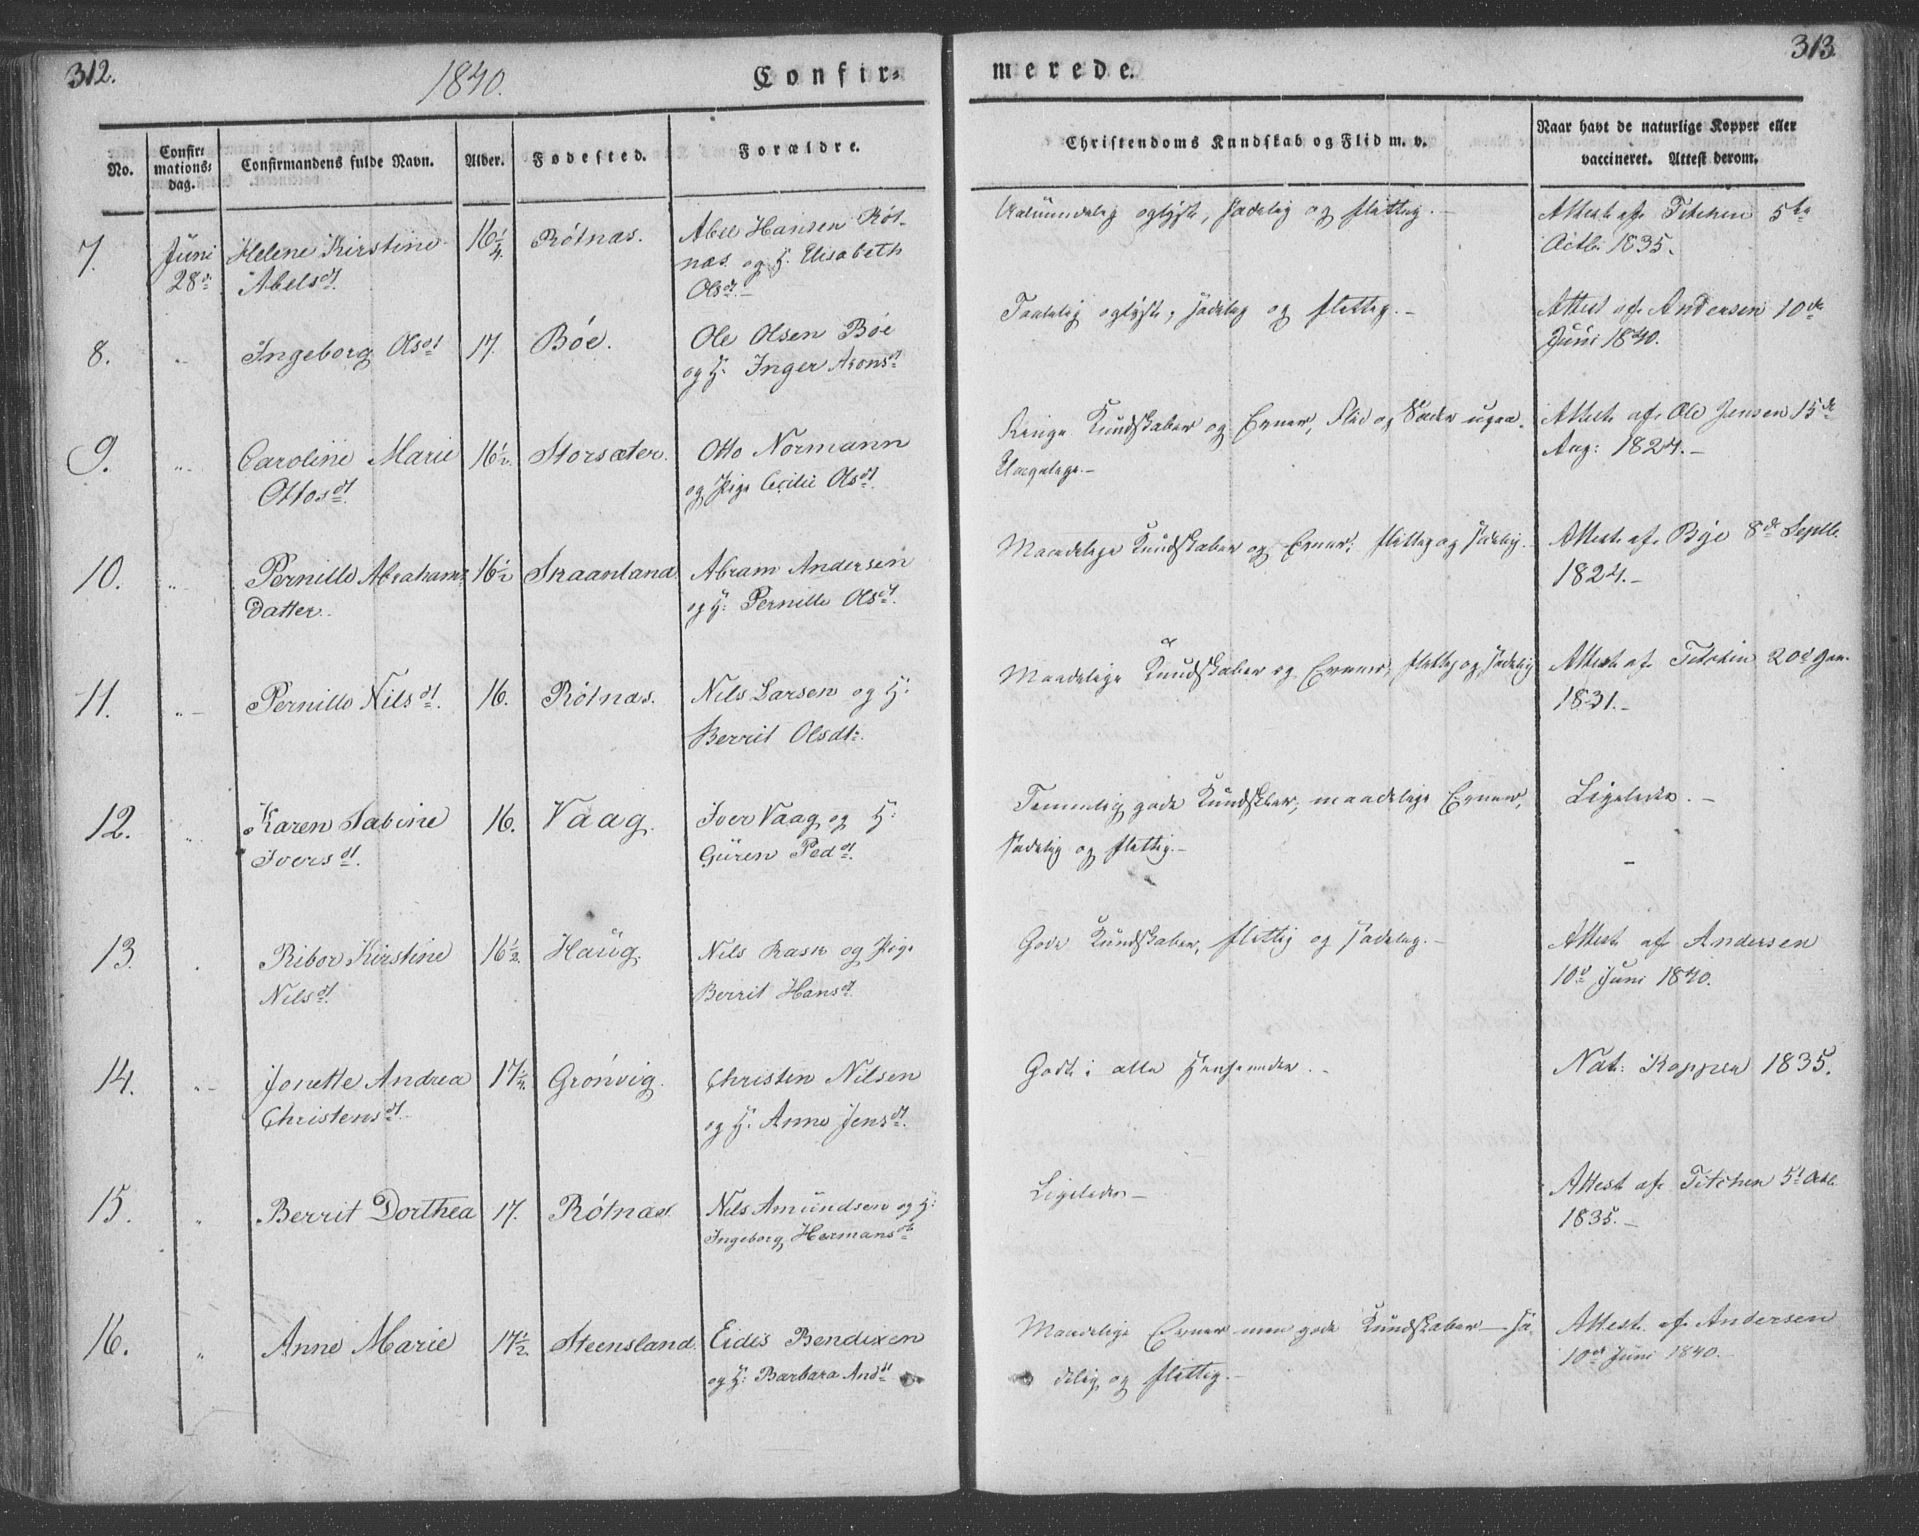 312.
1840.
Confir-
merede.
313
No.
Confir-
mations-
dag.
Confirmandens fulde Navn.
Alder.
Fødested.
Forældre.
Christendoms Kundskab og Flid m. v.
Naar havt de naturlige Kopper eller
vaccineret. Attest derom.
7.
Juni
28de
Helene Kirstine
Abelsdt.
16 1/4
Rötnæs.
Abel Hansen Röt-
næs og H: Elisabeth
Olsdt.
oplyst, sædelig og flittig.
Attest af Titchen 5te
Octb: 1835.
8.
"
Ingeborg Olsdt
17.
Böe.
Ole Olsen Böe
og H: Inger Aronsdt
Taalelig oplyst, sædelig og flittig.
Attest af Andersen 10de
Juni 1840.
9.
" "
Caroline Marie
Ottosdt.
16 1/2.
Storsæter.
Otto Normann
og Pige Cecilie Olsdt.
Ringe Kundskaber og Evner, Flid og Sæder
Attest af Ole Jensen 15de
Aug: 1824.
10.
" "
Pernille Abrahams
Datter.
16 1/2
Skaanland.
Abram Andersen
og H: Pernille Olsdt.
Maadelige Kundskaber og Evner; flittig og sædelig.
Attest af Bye 8de Septb.
1824.
11.
" -
Pernille Nilsdt.
16.
Rötnæs.
Nils Larsen og H:
Berrit Olsdtr.
Maadelige Kundskaber og Evner, flittig og sædelig
Attest af Titchen 20d Jan.
1831.
12.
" .
Karen Sabine
Iversdt.
16.
Vaag.
Iver Vaag og H:
Güren Peddt.
Temmelig gode Kundskber, maadelige Evner,
sædelig og flittig.
Ligeledes.
13.
.
Ribor Kirstine
Nilsdt.
16 1/2.
Haüg.
Nils Rask og Pige
Berrit Hansdt.
Gode Kundskaber, flittig og sædelig.
Attest af Andersen
10d Juni 1840.
14.
" -
Jonette Andrea
Christensdt.
17 1/4.
Grönvig.
Christen Nilsen
og H: Anne Jensdt.
Godt i alle Henseender.
Nat: Kopper 1835.
15.
"
Berrit Dorthea
17.
Rötnæs.
Nils Amündsen og H:
Ingeborg Hermansdt
Ligeledes
Attest af Titchen 5t Octb.
1835.
16.
"
Anne Marie
17 1/2.
Steensland.
Eidis Bendixen
og H: Barbara Anddt
Maadelige Evner men gode Kundskaber – sæ-
delig og flittig.
Attest af Andersen
10de Juni 1840.